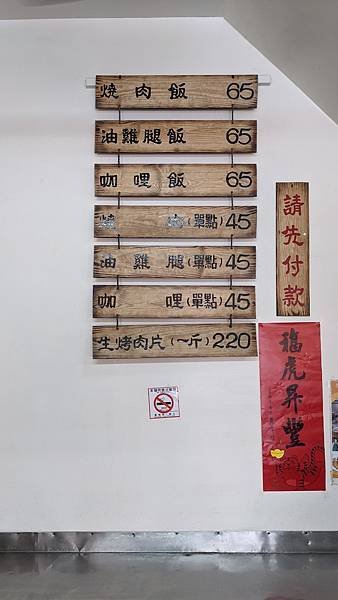 燒肉飯 65
油雞腿飯 65
咖哩飯 65
燒肉(單點) 45
油雞腿(單點) 45
咖哩(單點) 45
生烤肉片(一斤) 220
請先付款
福虎昇豐